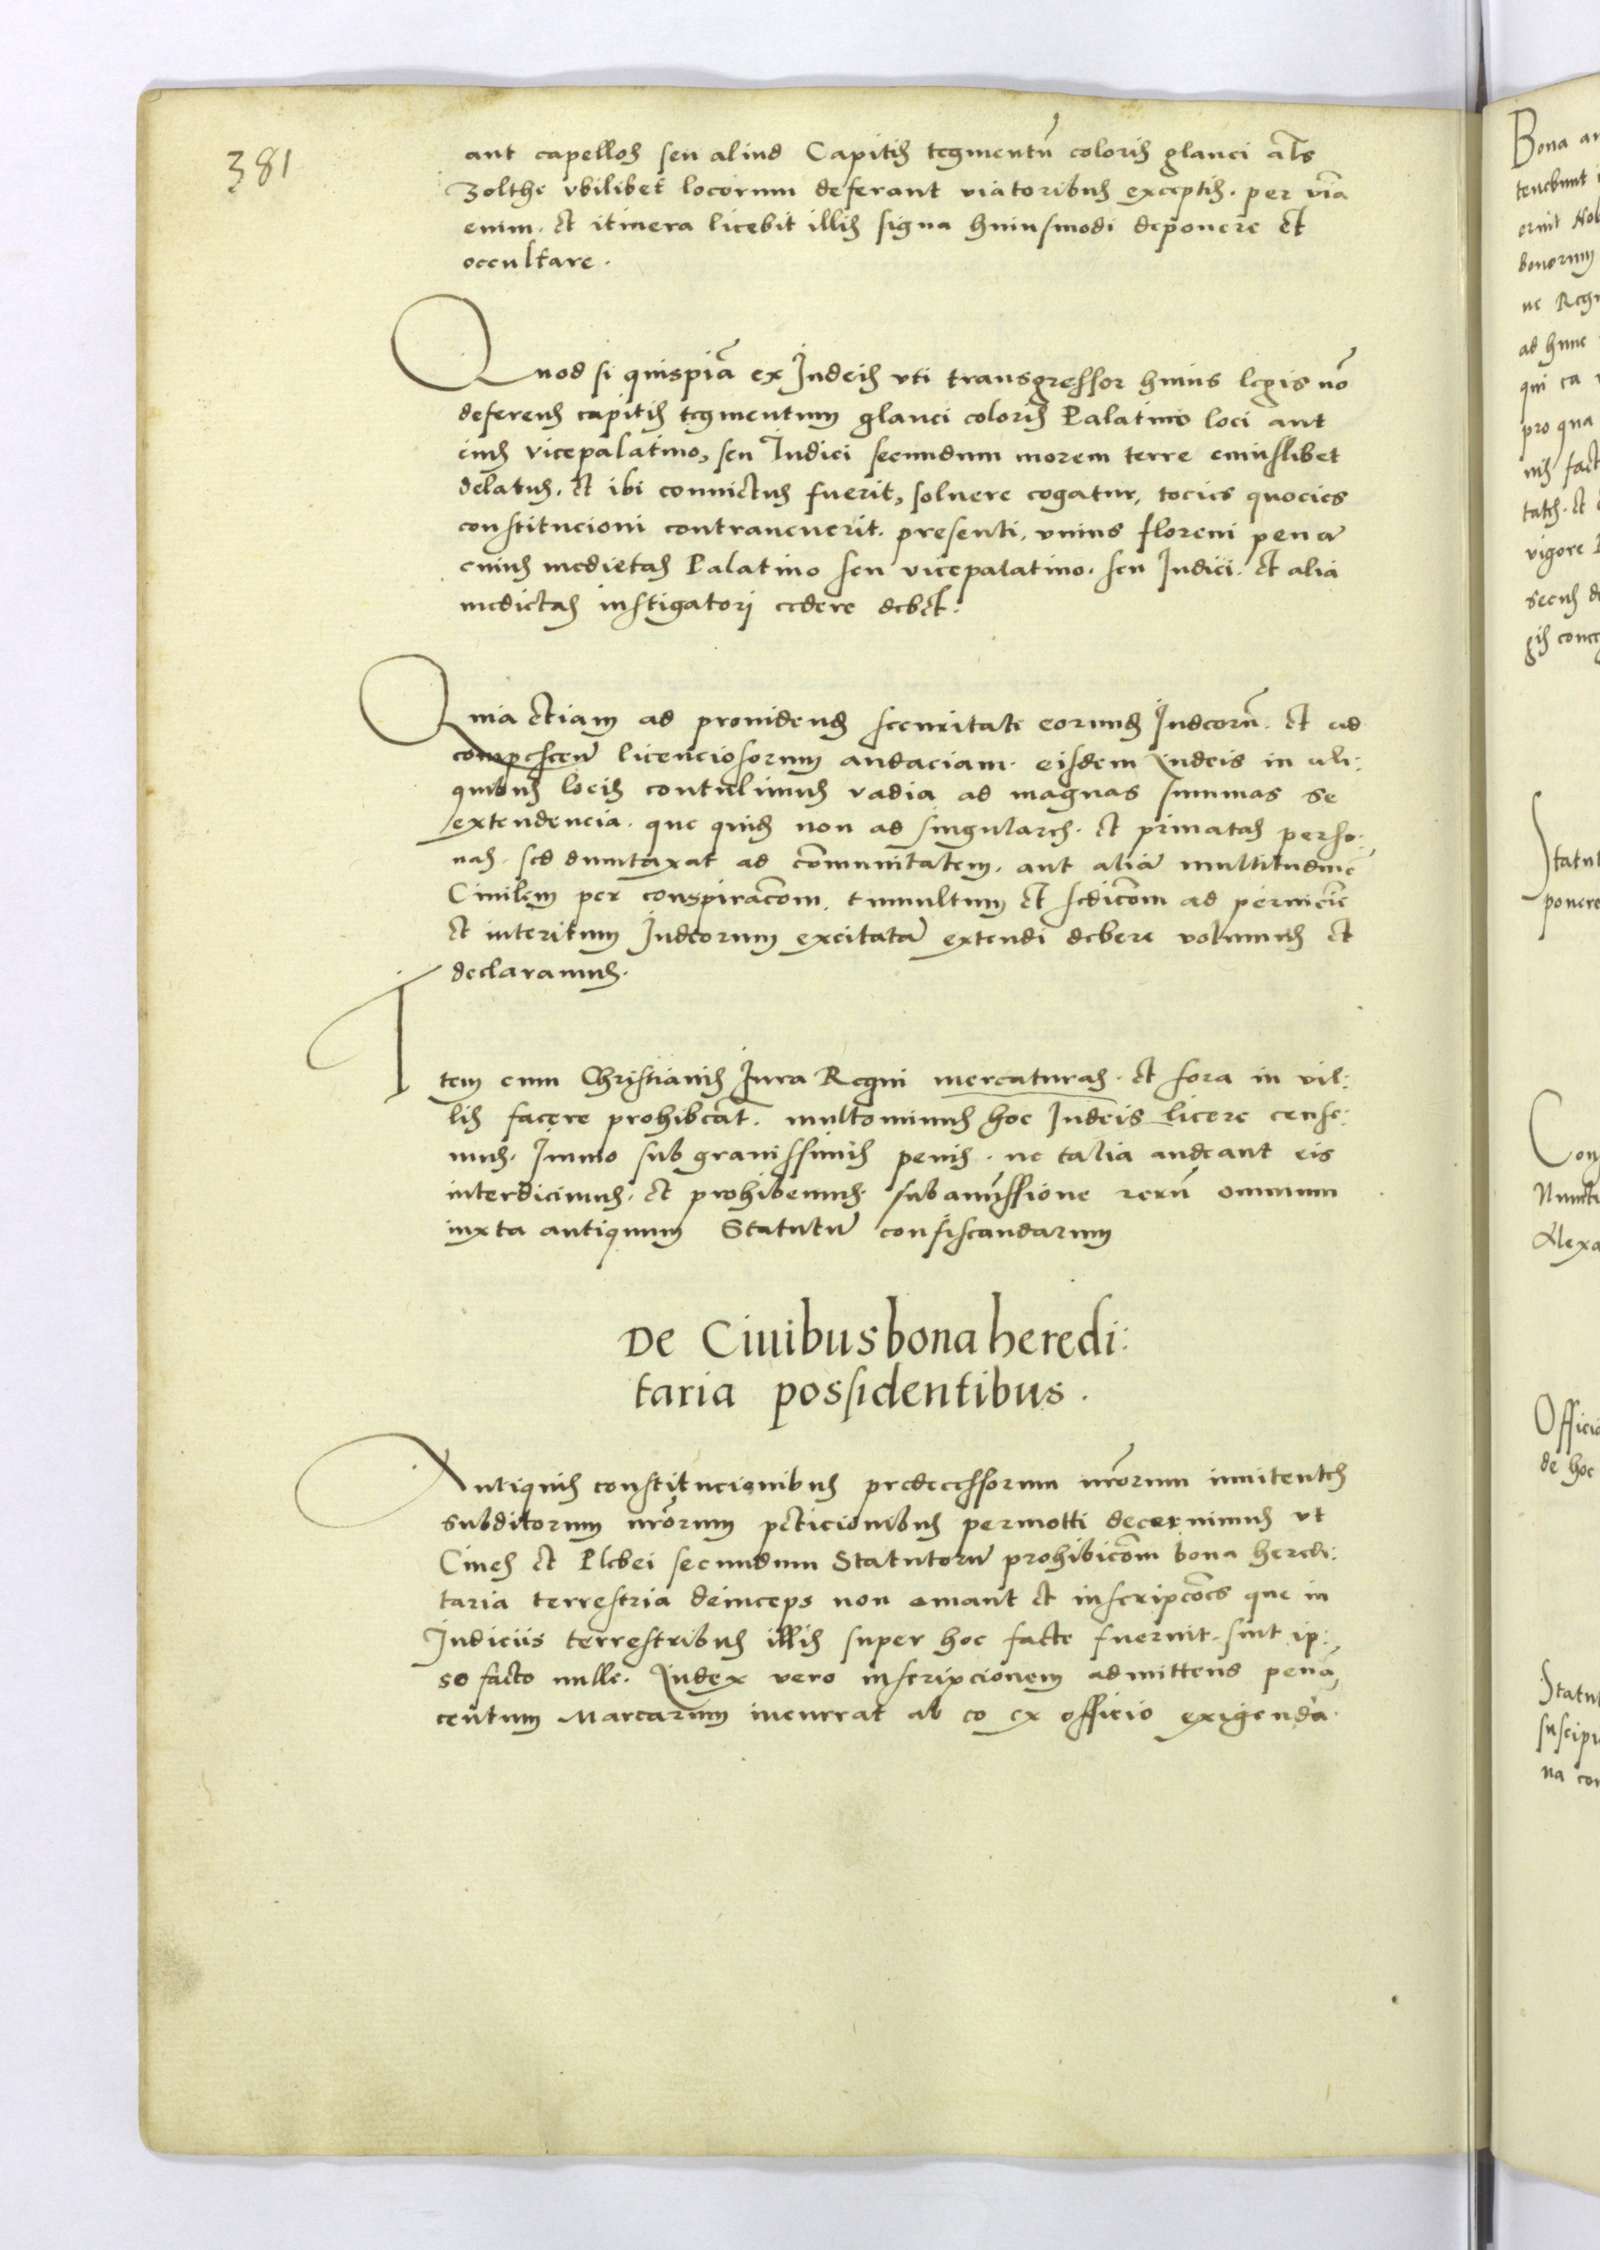 381
aut capellos seu aliud Capitis tegmentũ coloris glauci als
Zolthe vbilibet locorum deferant viatoribus exceptis. per via
enim. et itinera licebit illis signa huiusmodi deponere et
occultare.
Quod si quispiã ex Iudeis vti transgressor huius legis nõ
deferens capitis tegmentum glauci coloris Palatino loci aut
eius vicepalatino, seu Iudici secundum morem terre cuiuslibet
delatus. et ibi conuictus fuerit, soluere cogatur, tocies quocies
constitucioni contrauenerit. presenti, vnius floreni penã
cuius medietas Palatino seu vicepalatino. seu Iudici. et alia
medietas instigatori cedere debet.
Quia etiam ad prouidend securitati eorund Iudeorũ. et ad
compescenđ licenciosorum audaciam. eisdem Iudeis in ali:
quibus locis contulimus vadia ad magnas summas se
extendencia. que quid non ad singulares. et priuatas perso:
nas. sed dumtaxat ad cõmunitatem. aut aliã multitudinẽ
Ciuilem per conspiracõm. tumultum et sedicõm ad perniciẽ
et interitum Iudeorum excitatã extendi debere volumus et
declaramus.
Item cum Christianis Iura Regni mercaturas. et fora in vil:
lis facere prohibeãt. multominus hoc Iudeis licere cense:
mus. Immo sub grauissimis penis. ne talia audeant eis
interdicimus. et prohibemus. sub amissione rerũ omnium
iuxta antiquum Statutũ confiscandarum
De Ciuibus bona heredi:
taria possidentibus.
Antiquis constitucionibus predecessorum nrõrum innitentes
subditorum nrõrum peticionibus permotti decernimus vt
Ciues et Plebei secundum Statutorũ prohibicõm bona heredi:
taria terrestria deinceps non emant et inscripcões que in
Iudiciis terrestribus illis super hoc facte fuerint. sint ip:
so facto nulle. Iudex vero inscripcionem admittens penã
centum Marcarum incurrat ab eo ex officio exigendã.
Bona
tenebunt
bonorum
ad hunc
qui ea
pro qua
vigore
Statut
ponere
Alexa
Officia
de hoc
Statut
suscipi